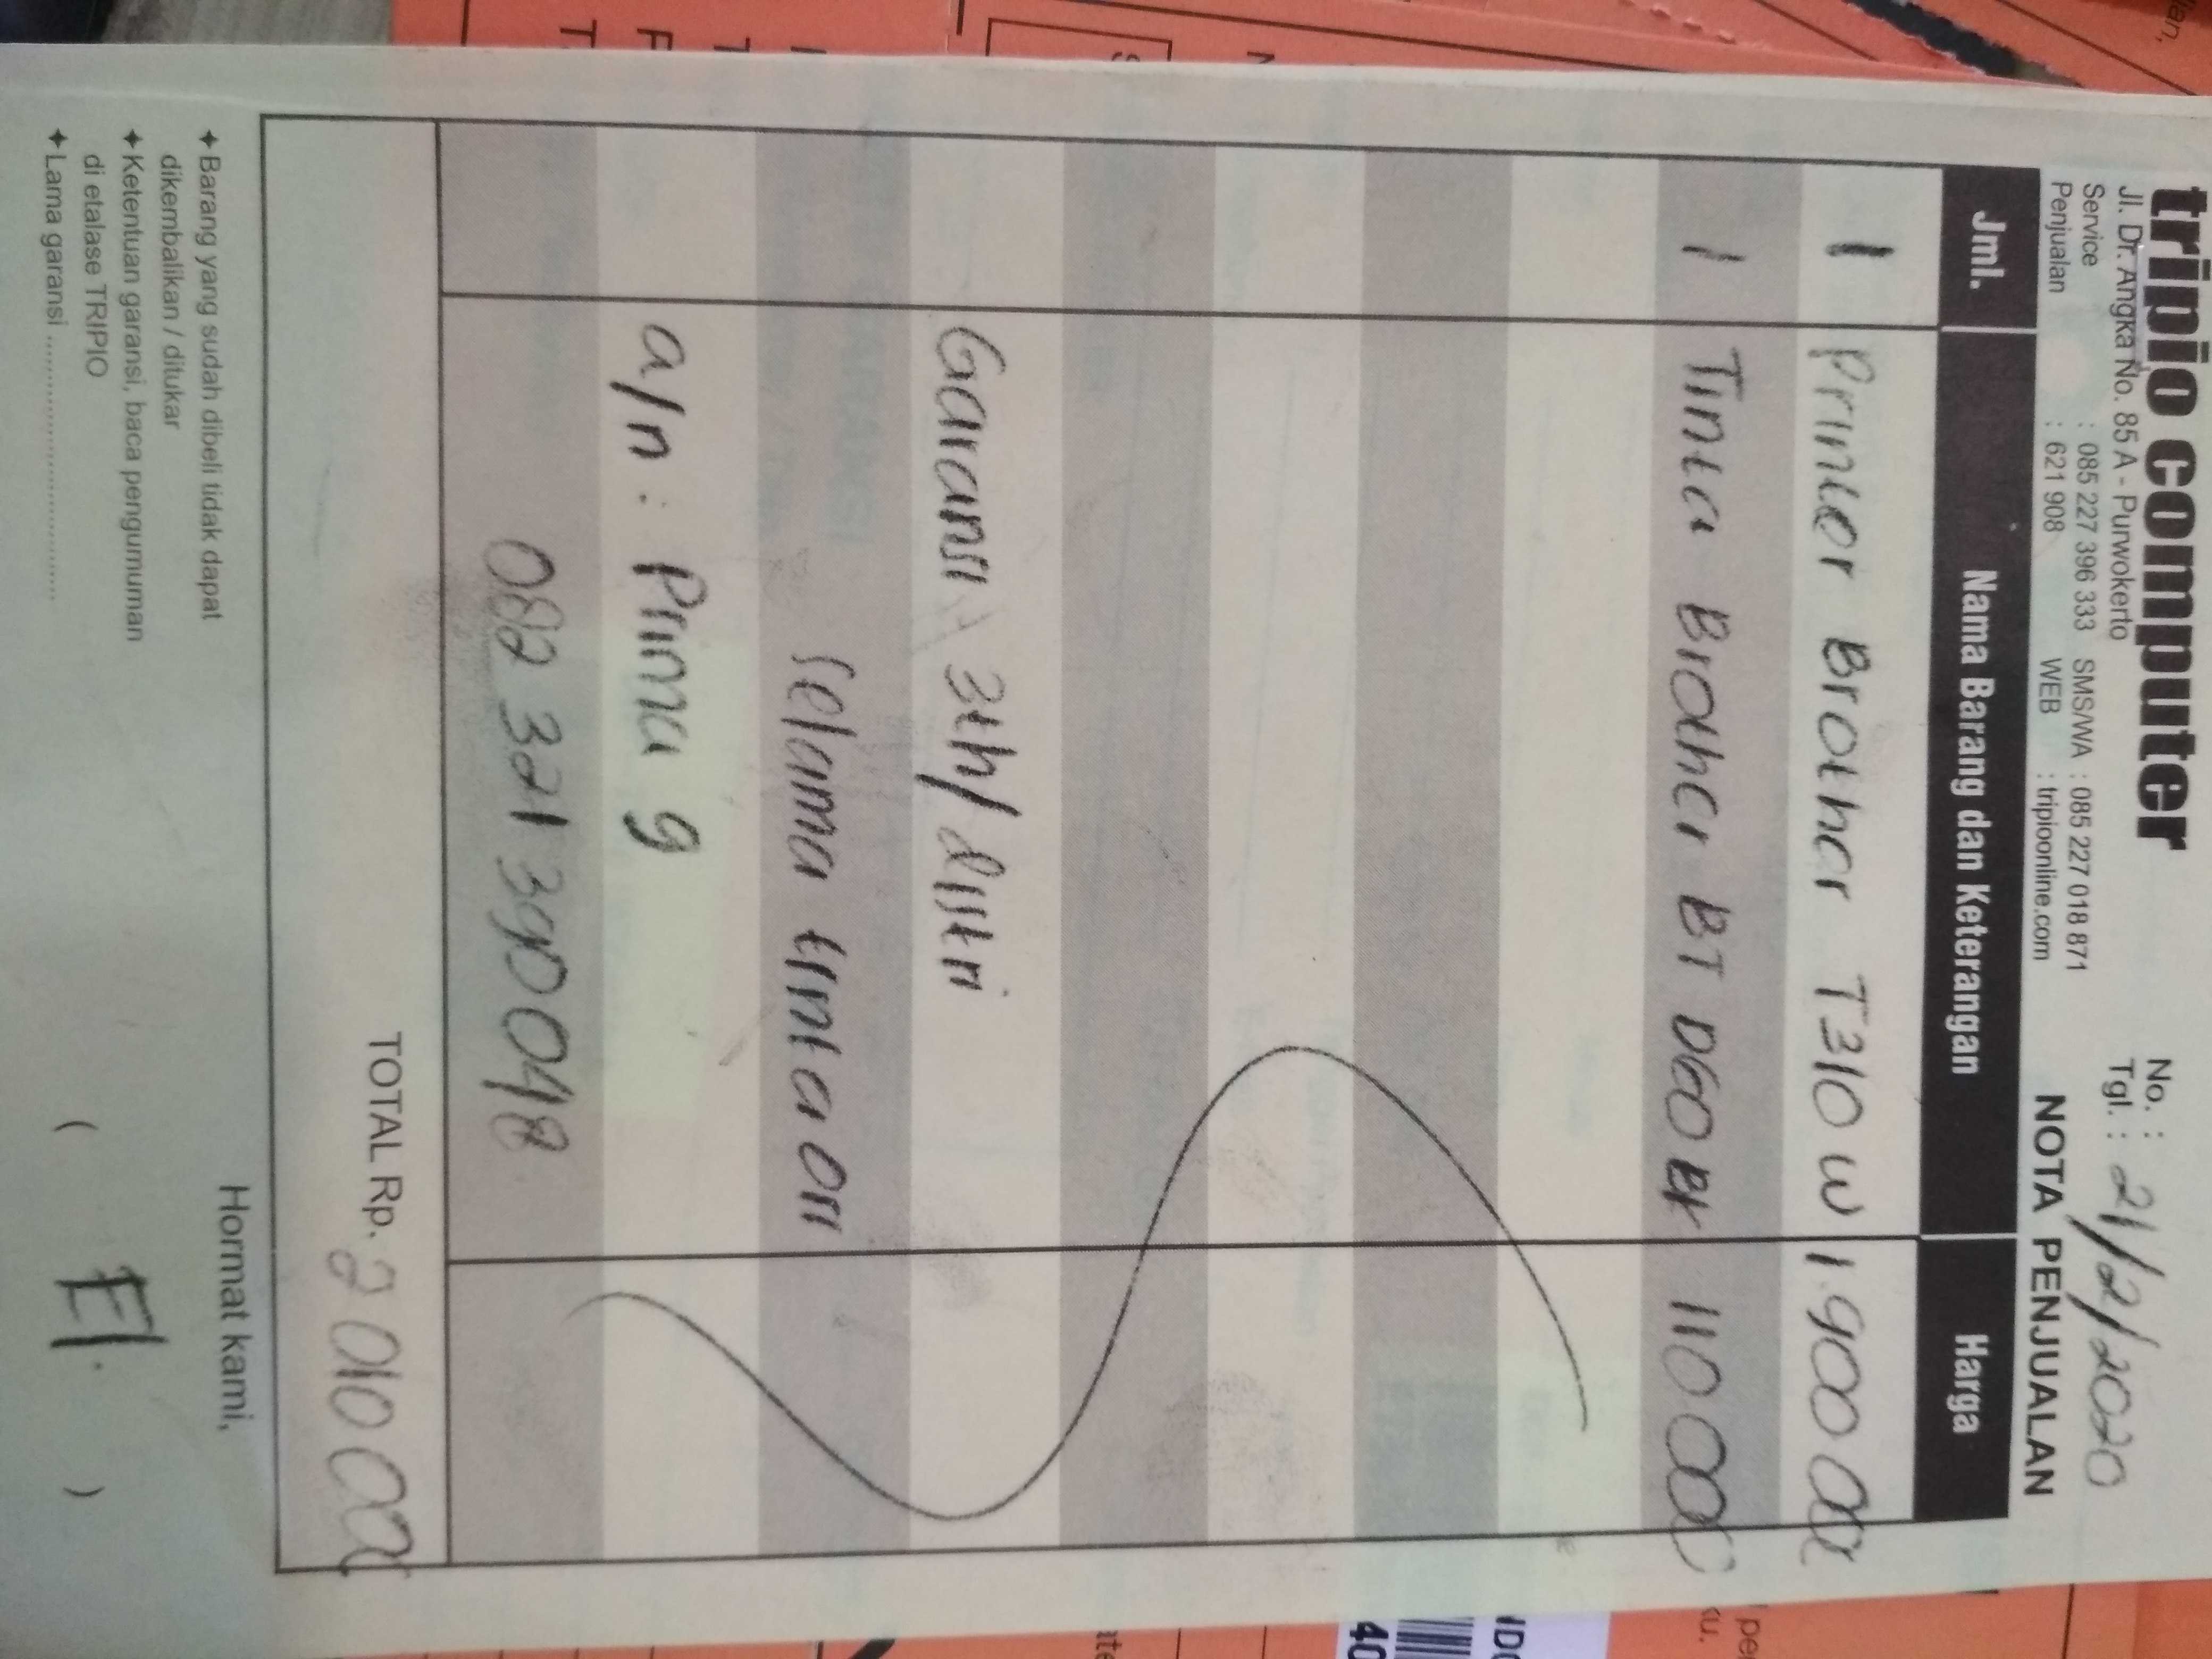 tripio computer
Jl. Dr. Angka No. 85 A - Purwokerto
Service : 085 227 396 333 SMS/WA : 085 227 018 871
Penjualan : 621 908 WEB : tripioonline.com
No. :
Tgl. : 21/2/2020
NOTA PENJUALAN
Jml. Nama Barang dan Keterangan Harga
1 Printer Brother T310 W 1.900 000
1 Tinta Brother BT D60 BK 110 000
Garansi 3th/distri
selama tinta ori
a/n : Prima g
082 321 390 048
TOTAL Rp. 2 010 000
✦ Barang yang sudah dibeli tidak dapat
dikembalikan / ditukar
✦ Ketentuan garansi, baca pengumuman
di etalase TRIPIO
✦ Lama garansi ........................................
Hormat kami,
( El. )